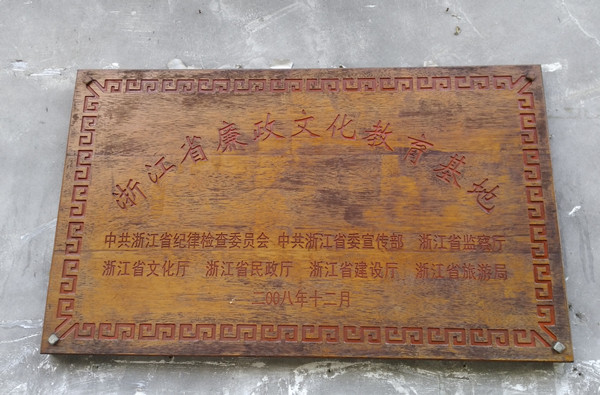 浙江省廉政文化教育基地
中共浙江省纪律检查委员会 中共浙江省委宣传部 浙江省监察厅
浙江省文化厅 浙江省民政厅 浙江省建设厅 浙江省旅游局
二00八年十二月